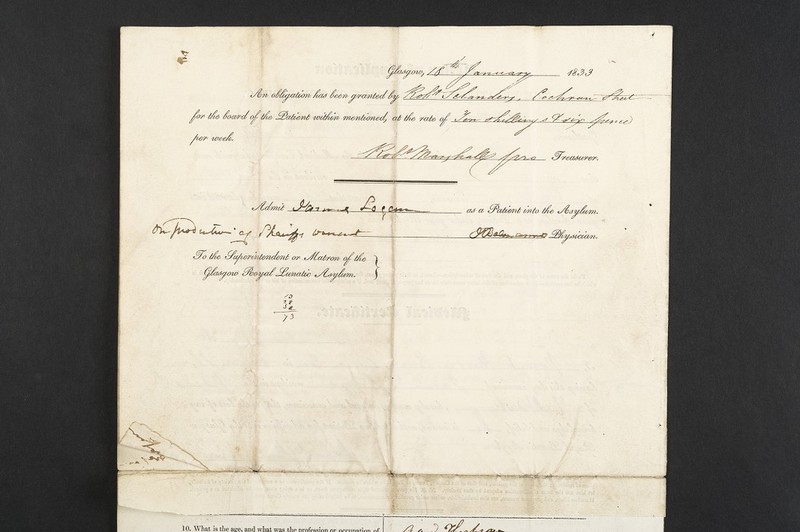 Glasgow, 18th January 1833
An obligation has been granted by Robt. Cochran Street
for the board of the Patient within mentioned, at the rate of Ten shillings & six pence
per week.
Robt. Marshall pro Treasurer.
Admit Logan as a Patient into the Asylum.
On production of Sheriffs warrant Physician.
To the Superintendent or Matron of the
Glasgow Royal Lunatic Asylum.
73
10. What is the age, and what was the profession or occupation of